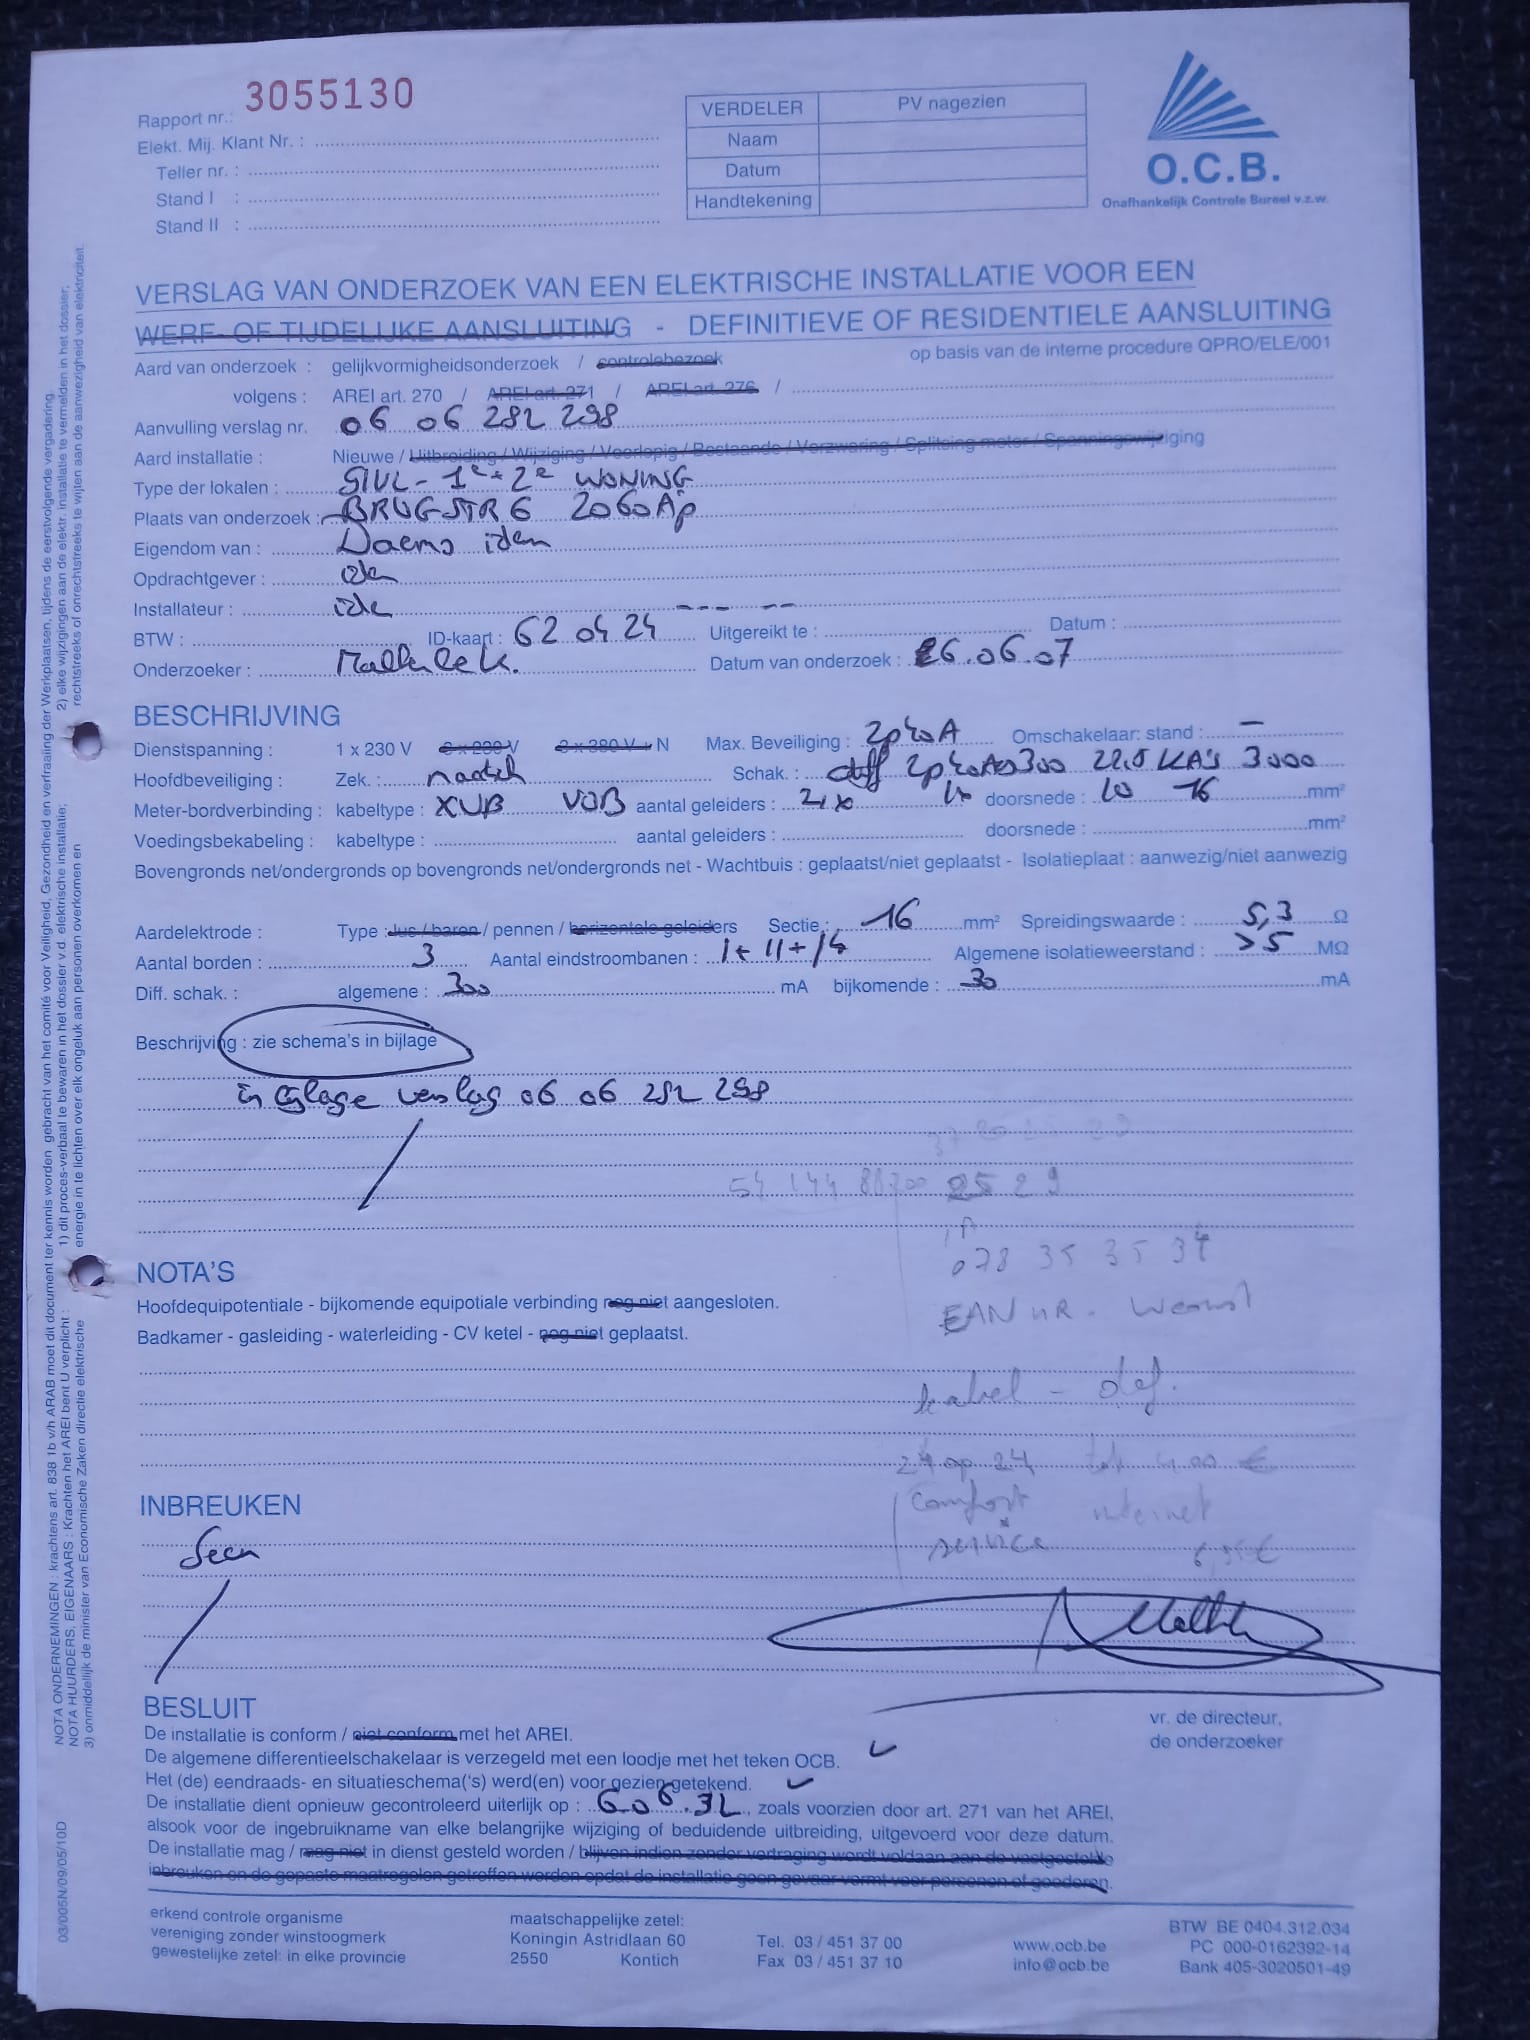 Rapport nr.: 3055130
Elekt. Mij. Klant Nr. :
Teller nr. :
Stand I :
Stand II :
VERDELER PV nagezien
Naam
Datum
Handtekening
O.C.B.
Onafhankelijk Controle Bureel v.z.w.
VERSLAG VAN ONDERZOEK VAN EEN ELEKTRISCHE INSTALLATIE VOOR EEN
WERF- OF TIJDELIJKE AANSLUITING - DEFINITIEVE OF RESIDENTIELE AANSLUITING
op basis van de interne procedure QPRO/ELE/001
Aard van onderzoek : gelijkvormigheidsonderzoek / controlebezoek
volgens : AREI art. 270 / AREI art. 271 / AREI art. 276 /
Aanvulling verslag nr. 06 06 282 298
Aard installatie : Nieuwe / Uitbreiding / Wijziging / Voorlopig / Bestaande / Verzwaring / Splitsing meter / Spanningswijziging
Type der lokalen : - 1e + 2e WONING
Plaats van onderzoek : BRUGSTR 6 2060 Ap
Eigendom van : Daems iden
Opdrachtgever : iden
Installateur : iden
BTW : ID-kaart : 62 04 24 Uitgereikt te : Datum :
Onderzoeker : Datum van onderzoek : 26.06.07
BESCHRIJVING
Dienstspanning : 1 x 230 V 3 x 230 V 3 x 380 V + N Max. Beveiliging : 2p40A Omschakelaar: stand : -
Hoofdbeveiliging : Zek. : Schak. : diff 2p40A 300 22,5 KA²s 3000
Meter-bordverbinding : kabeltype : XVB VOB aantal geleiders : doorsnede : 10 16 mm²
Voedingsbekabeling : kabeltype : aantal geleiders : doorsnede : mm²
Bovengronds net/ondergronds op bovengronds net/ondergronds net - Wachtbuis : geplaatst/niet geplaatst - Isolatieplaat : aanwezig/niet aanwezig
Aardelektrode : Type : lus / baren / pennen / horizontale geleiders Sectie : 16 mm² Spreidingswaarde : 5,3 Ω
Aantal borden : 3 Aantal eindstroombanen : 1 + 11 + 14 Algemene isolatieweerstand : >5 MΩ
Diff. schak. : algemene : 300 mA bijkomende : 30 mA
Beschrijving : zie schema's in bijlage
in bijlage verslag 06 06 282 298
078 35 35 34
EAN nR.
kabel - def.
24 op 24
comfort internet
service
NOTA'S
Hoofdequipotentiale - bijkomende equipotiale verbinding nog niet aangesloten.
Badkamer - gasleiding - waterleiding - CV ketel - nog niet geplaatst.
INBREUKEN
Geen
BESLUIT
De installatie is conform / niet conform met het AREI.
De algemene differentieelschakelaar is verzegeld met een loodje met het teken OCB.
Het (de) eendraads- en situatieschema('s) werd(en) voor gezien getekend.
De installatie dient opnieuw gecontroleerd uiterlijk op : 6.06.32, zoals voorzien door art. 271 van het AREI,
alsook voor de ingebruikname van elke belangrijke wijziging of beduidende uitbreiding, uitgevoerd voor deze datum.
De installatie mag / mag niet in dienst gesteld worden / blijven indien zonder vertraging wordt voldaan aan de vastgestelde
inbreuken en de gepaste maatregelen getroffen worden opdat de installatie geen gevaar vormt voor personen of goederen.
vr. de directeur,
de onderzoeker
erkend controle organisme
vereniging zonder winstoogmerk
gewestelijke zetel: in elke provincie
maatschappelijke zetel:
Koningin Astridlaan 60
2550 Kontich
Tel. 03 / 451 37 00
Fax 03 / 451 37 10
www.ocb.be
info@ocb.be
BTW BE 0404.312.034
PC 000-0162392-14
Bank 405-3020501-49
NOTA ONDERNEMINGEN : krachtens art. 838 1b v/h ARAB moet dit document ter kennis worden gebracht van het comité voor Veiligheid, Gezondheid en verfraaiing der Werkplaatsen, tijdens de eerstvolgende vergadering.
NOTA HUURDERS, EIGENAARS : Krachten het AREI bent U verplicht : 1) dit proces-verbaal te bewaren in het dossier v.d. elektrische installatie; 2) elke wijzigingen aan de elektr. installatie te vermelden in het dossier;
3) onmiddellijk de minister van Economische Zaken directie elektrische energie in te lichten over elk ongeluk aan personen overkomen en rechtstreeks of onrechtstreeks te wijten aan de aanwezigheid van elektriciteit.
03/005N/09/05/10D